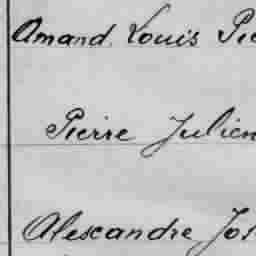 Amand Louis Pie
Pierre Julien
Alexandre Jos